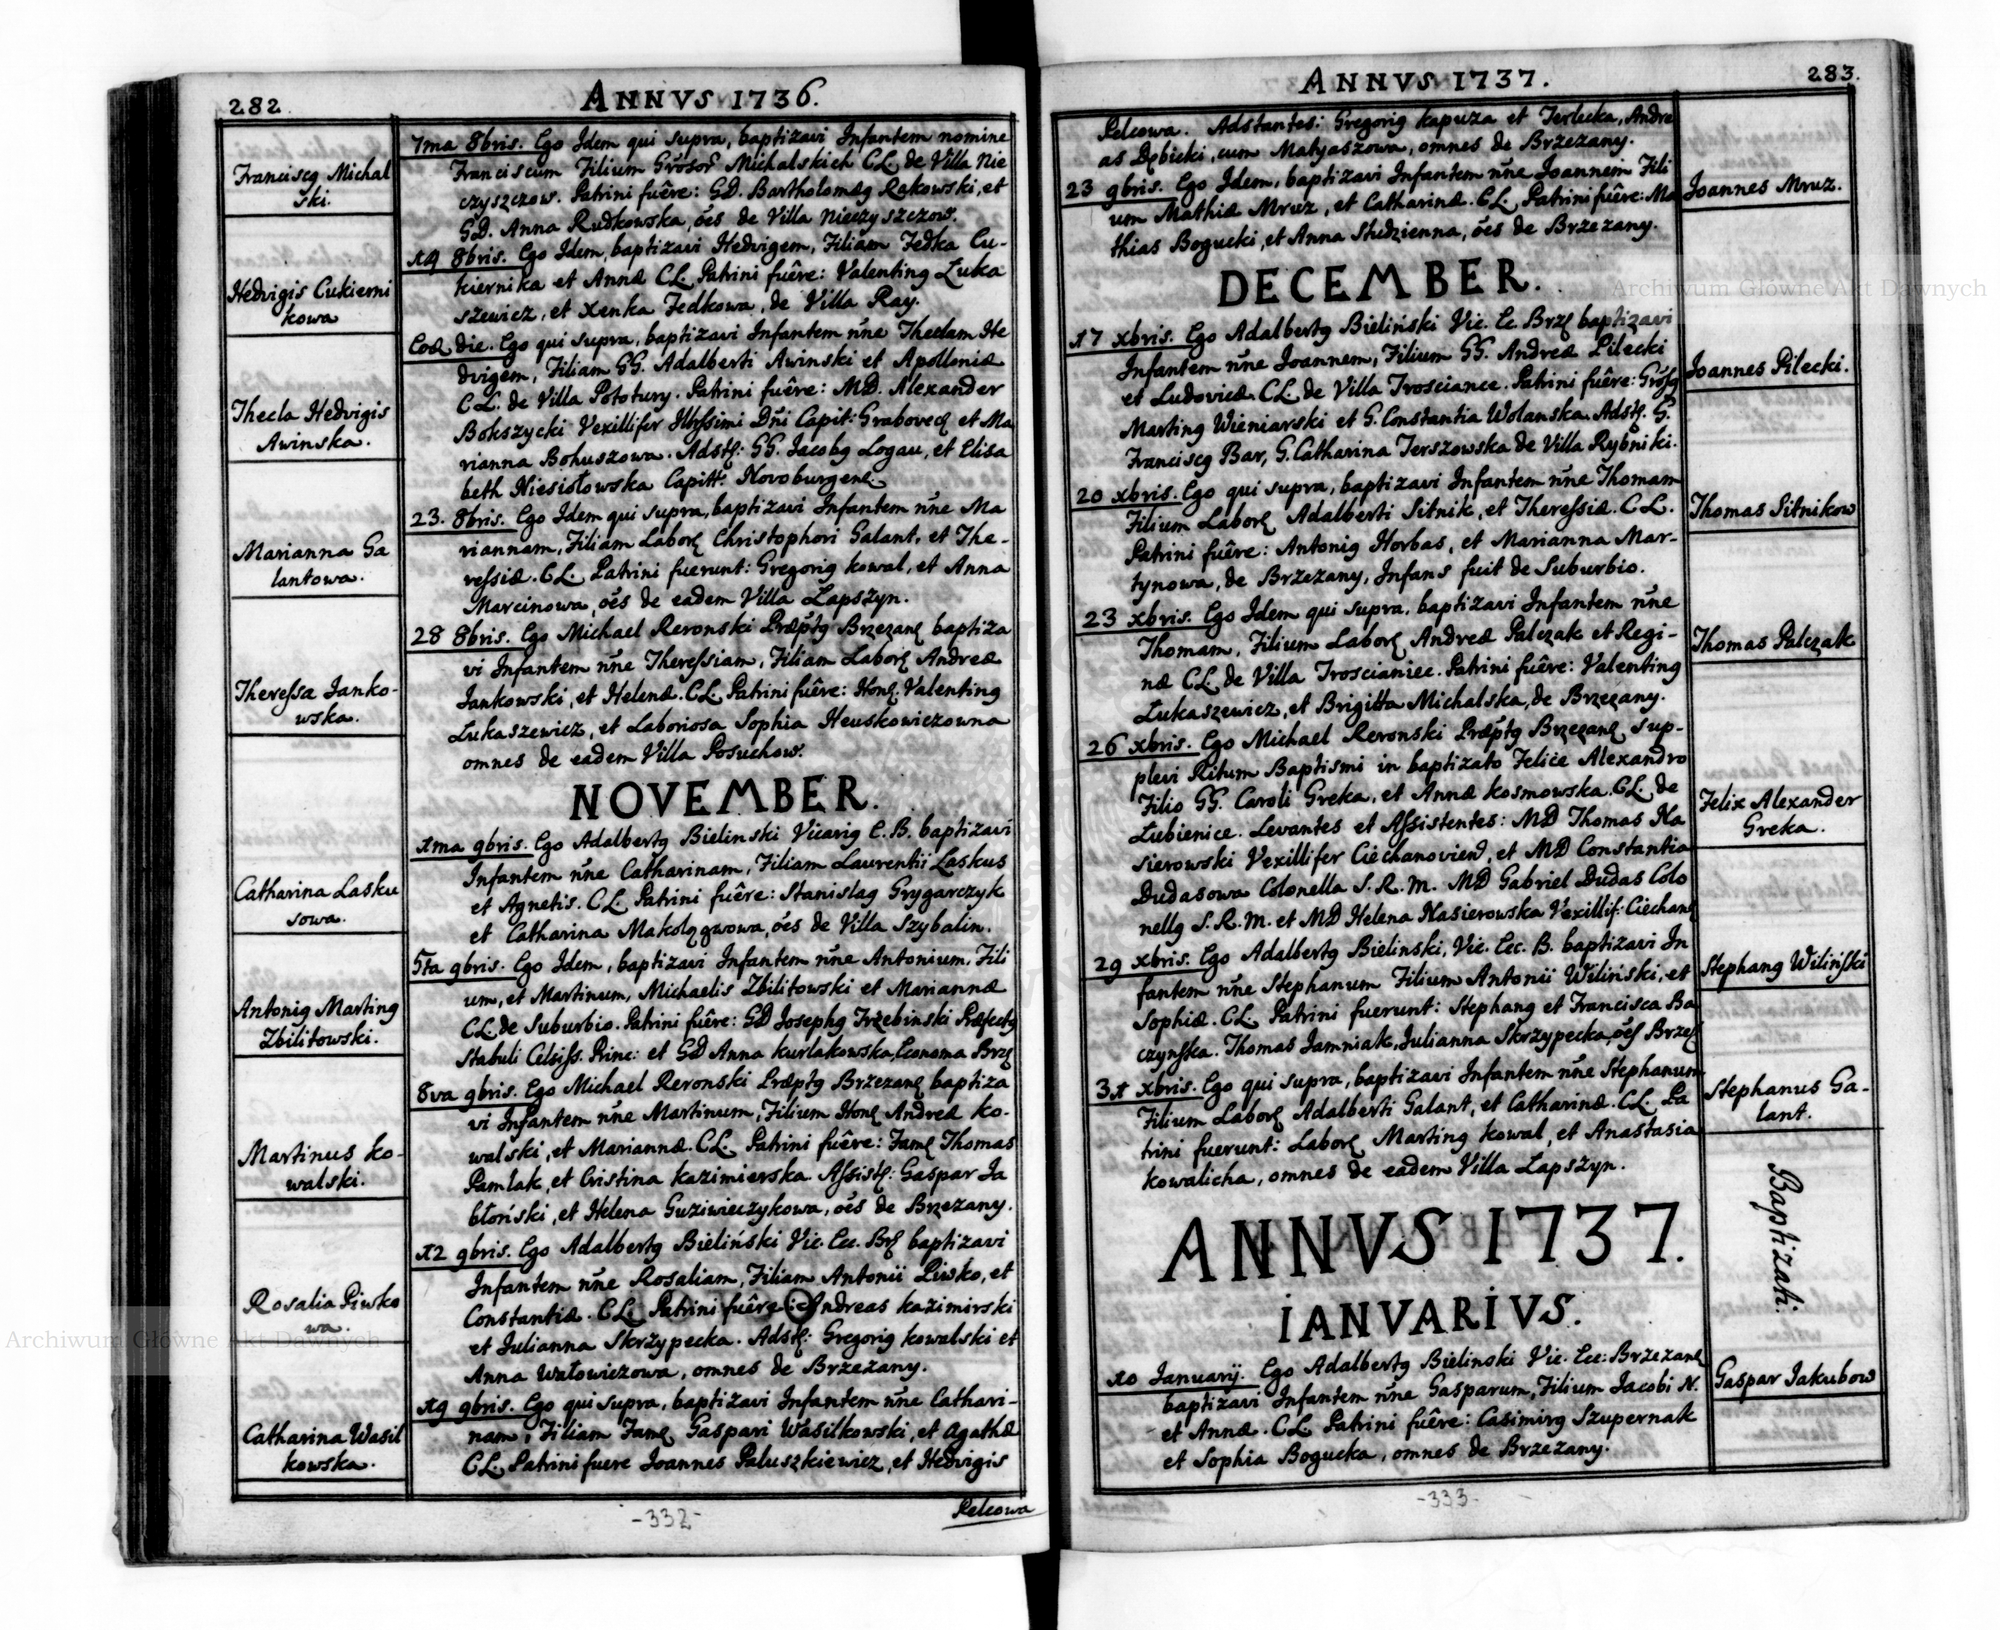 282.
ANNVS 1736.
Franciscq Michal
ski.
7ma 8bris. Ego Idem qui supra, baptizavi Infantem nomine
Franciscum Filium Gr̃osor̃ Michalskich CL. de Villa Nie
czyszczow. Patrini fuêre: GD. Bartholomæq Rakowski, et
GD. Anna Rudkowska, ões de Villa Nieczyszczow.
Hedvigis Cukierni
kowa
19 8bris. Ego Idem, baptizavi Hedvigem, Filiam Fedka Cu-
kiernika et Annæ CL. Patrini fuêre: Valentinq Łuka
szewicz, et Xenka Fedkowa, de Villa Ray.
Thecla Hedvigis
Awinska.
Eoď die. Ego qui supra, baptizavi Infantem ñne Theclam He
dvigem, Filiam GG. Adalberti Awinski et Apolloniæ
CL. de Villa Pototury. Patrini fuêre: MD. Alexander
Bokszycki Vexillifer Illr̃ssimi Dñi Capit: Graboveď et Ma
rianna Bohuszowa. Adstʃ: GG. Jacobq Logau, et Elisa
beth Niesiołowska Capitt: Novoburgenʃ.
Marianna Ga
lantowa.
23. 8bris. Ego Idem qui supra, baptizavi Infantem ñne Ma
riannam, Filiam Laborʃ Christophori Galant, et The-
reſsiæ. CL. Patrini fuerunt: Gregoriq Kowal, et Anna
Marcinowa, ões de eadem Villa Łapszyn.
Thereſsa Janko-
wska.
28 8bris. Ego Michael Reronski Præp̃tq Brzezanʃ baptiza
vi Infantem ñne Thereſsiam, Filiam Laborʃ Andreæ
Jankowski, et Helenæ. CL. Patrini fuêre: Honʃ. Valentinq
Łukaszewicz, et Laboriosa Sophia Heuskowiczowna
omnes de eadem Villa Posuchow.
NOVEMBER.
Catharina Lasku
sowa.
1ma 9bris. Ego Adalbertq Bielinski Vicariq E. B. baptizavi
Infantem ñne Catharinam, Filiam Laurentii Laskus
et Agnetis. CL. Patrini fuêre: Stanislaq Grygarczyk
et Catharina Makolągwowa, ões de Villa Szybalin.
Antoniq Martinq
Zbilitowski.
5ta 9bris. Ego Idem, baptizavi Infantem ñne Antonium, Fili
um, et Martinum, Michaelis Zbilitowski et Mariannæ
CL. de Suburbio. Patrini fuêre: GD Josephq Trzebinski Præfectq
Stabuli Celsiſs. Princ: et GD Anna Kurlakowska, Economa Brzʃ
Martinus Ko-
walski.
8va 9bris. Ego Michael Reronski Præp̃tq Brzezanʃ baptiza
vi Infantem ñne Martinum, Filium Honʃ Andreæ Ko-
walski, et Mariannæ. CL. Patrini fuêre: Famʃ Thomas
Pamłak, et Cristina Kazimierska. Aſsistʃ: Gaspar Ja
błoński, et Helena Guziwieczykowa, ões de Brzezany.
Rosalia Piwko
wa.
12 9bris. Ego Adalbertq Bieliński Vic. Ec. Brʃ baptizavi
Infantem ñne Rosaliam, Filiam Antonii Piwko, et
Constantiæ. CL. Patrini fuêre: Andreas Kazimirski
et Julianna Skrzypecka. Adstʃ: Gregoriq Kowalski et
Anna Watowiczowa, omnes de Brzezany.
Catharina Wasil
kowska.
19 9bris. Ego qui supra, baptizavi Infantem ñne Cathari-
nam, Filiam Famʃ Gaspari Wasilkowski, et Agathæ
CL. Patrini fuere Joannes Paluszkiewicz, et Hedvigis
Pelcowa
-332-
ANNVS 1737.
283.
Pelcowa. Adstantes: Gregoriq Kapuza et Terlecka, Andre
as Dębicki, cum Matyaszowa, omnes de Brzezany.
23 9bris. Ego Idem, baptizavi Infantem ñne Joannem Fili
um Mathiæ Mruz, et Catharinæ. CL. Patrini fuêre: Ma
thias Bogucki, et Anna Studzienna, ões de Brzezany.
Joannes Mruz.
DECEMBER.
17 xbris. Ego Adalbertq Bieliński Vic. Ec. Brzʃ baptizavi
Infantem ñne Joannem, Filium GG. Andreæ Pilecki
et Ludovicæ. CL. de Villa Trosciance. Patrini fuêre: Gr̃osq
Martinq Wieniarski et G. Constantia Wolanska. Adstʃ. G.
Franciscq Bar, G. Catharina Terszowska de Villa Rybniki.
Joannes Pilecki.
20 xbris. Ego qui supra, baptizavi Infantem ñne Thomam
Filium Laborʃ Adalberti Sitnik, et Thereſsiæ. CL.
Patrini fuêre: Antoniq Horbas, et Marianna Mar-
tynowa, de Brzezany, Infans fuit de Suburbio.
Thomas Sitnikow
23 xbris. Ego Idem qui supra, baptizavi Infantem ñne
Thomam, Filium Laborʃ Andreæ Palczak et Regi-
næ CL. de Villa Troscianiec. Patrini fuêre: Valentinq
Łukaszewicz, et Brigitta Michalska, de Brzezany.
Thomas Palczak
26 xbris. Ego Michael Reronski Præp̃tq Brzezanʃ, Sup-
plevi Ritum Baptismi in baptizato Felice Alexandro
Filio GG. Caroli Greka, et Annæ Kosmowska. CL. de
Łubienice. Levantes et Aſsistentes: MD Thomas Na
sierowski Vexillifer Ciechanovienʃ, et MD Constantia
Dudasowa Colonella S. R. M. MD Gabriel Dudas Colo
nellq S. R. M. et MD Helena Nasierowska Vexillif: Ciechanʃ
Felix Alexander
Greka.
29 xbris. Ego Adalbertq Bielinski, Vic. Ec. B. baptizavi In
fantem ñne Stephanum Filium Antonii Wiliński, et
Sophiæ. CL. Patrini fuerunt: Stephanq et Francisca Ba
czynſka. Thomas Jamniak, Julianna Skrzypecka, ões Brzeʃ
Stephanq Wilińſki
31 xbris. Ego qui supra, baptizavi Infantem ñne Stephanum
Filium Laborʃ Adalberti Galant, et Catharinæ. CL. Pa
trini fuerunt: Laborʃ Martinq Kowal, et Anastasia
Kowalicha, omnes de eadem Villa Łapszyn.
Stephanus Ga-
lant.
ANNVS 1737.
Baptizati.
IANVARIVS.
10 Januarij. Ego Adalbertq Bielinski Vic. Ec: Brzezanʃ
baptizavi Infantem ñne Gasparum, Filium Jacobi N.
et Annæ. CL. Patrini fuêre: Casimirq Szupernak
et Sophia Bogucka, omnes de Brzezany.
Gaspar Jakubow
-333-
Archiwum Główne Akt Dawnych
Archiwum Główne Akt Dawnych